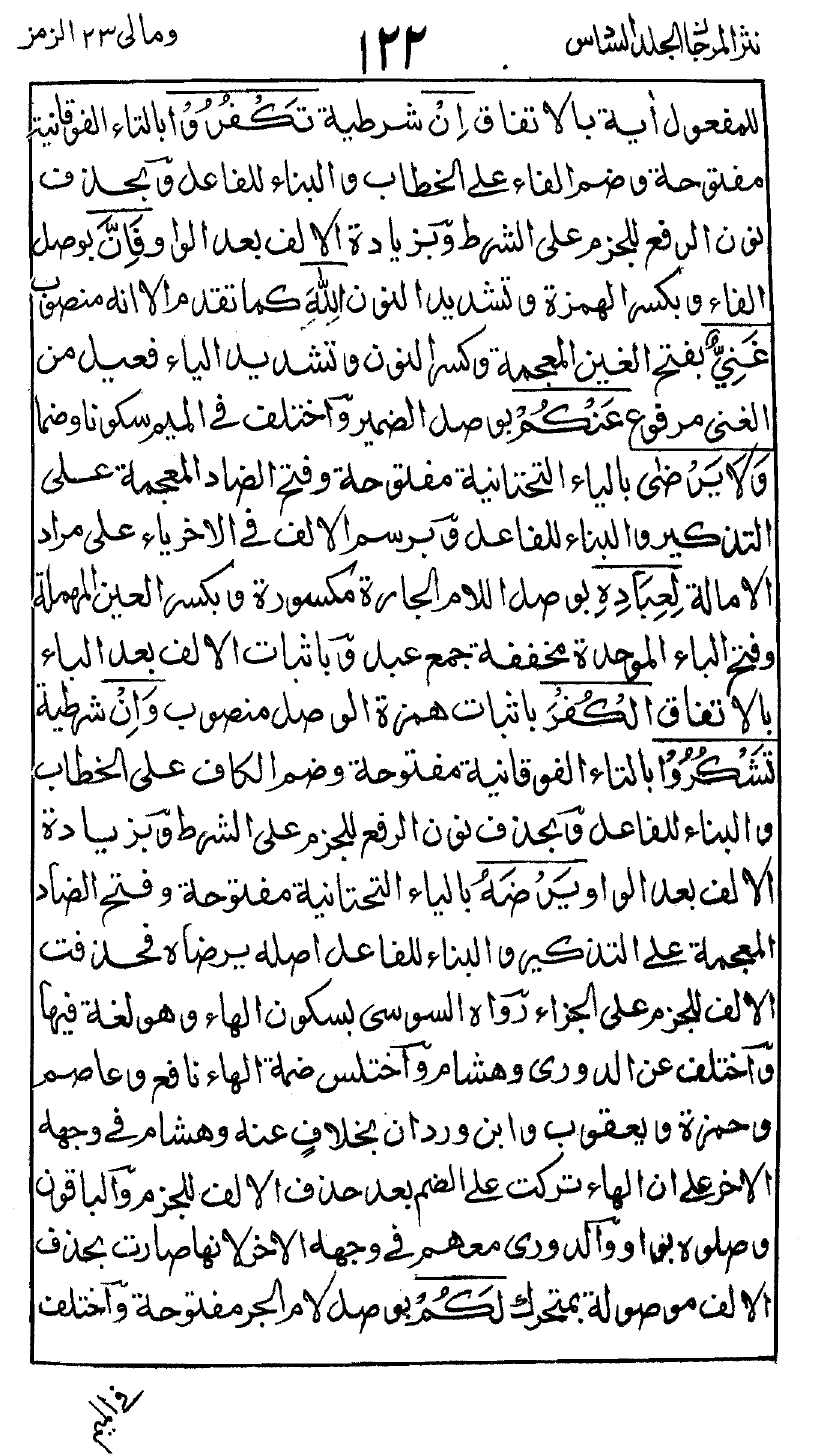 نثر المرجان المجلد السادس ١٢٢ ومالى ٢٣ الزمر
للمفعول أية بالاتفاق اِنْ شرطية تَكْفُرُوْا بالتاء الفوقانية
مفتوحة وضم الفاء على الخطاب والبناء للفاعل وبحذف
نون الرفع للجزم على الشرط وبزيادة الالف بعد الواو فَاِنَّ بوصل
الفاء وبكسر الهمزة وتشديد النون اللهَ كما تقدم الا انه منصوب
غَنِيٌّ بفتح الغين المعجمة وكسر النون وتشديد الياء فعيل من
الغنى مرفوع عَنْكُمْ بوصل الضمير واختلف في الميم سكونا وضما
وَلَا يَرْضٰى بالياء التحتانية مفتوحة وفتح الضاد المعجمة على
التذكير والبناء للفاعل وبرسم الالف في الاخر ياء على مراد
الامالة لِعِبَادِهِ بوصل اللام الجارة مكسورة وبكسر العين المهملة
وفتح الباء الموحدة مخففة جمع عبد وباثبات الالف بعد الباء
بالاتفاق الْكُفْرَ باثبات همزة الوصل منصوب وَاِنْ شرطية
تَشْكُرُوْا بالتاء الفوقانية مفتوحة وضم الكاف على الخطاب
والبناء للفاعل وبحذف نون الرفع للجزم على الشرط وبزيادة
الالف بعد الواو يَرْضَهُ بالياء التحتانية مفتوحة وفتح الضاد
المعجمة على التذكير والبناء للفاعل اصله يرضاه فحذفت
الالف للجزم على الجزاء رواه السوسى بسكون الهاء وهو لغة فيها
واختلف عن الدورى وهشام واختلس ضمة الهاء نافع وعاصم
وحمزة ويعقوب وابن وردان بخلافٍ عنه وهشام في وجهه
الاخر على ان الهاء تركت على الضم بعد حذف الالف للجزم والباقون
وصلوه بواو والدورى معهم في وجهه الاخر لانها صارت بحذف
الالف موصولة بمتحرك لَكُمْ بوصل لام الجر مفتوحة واختلف
في الميم